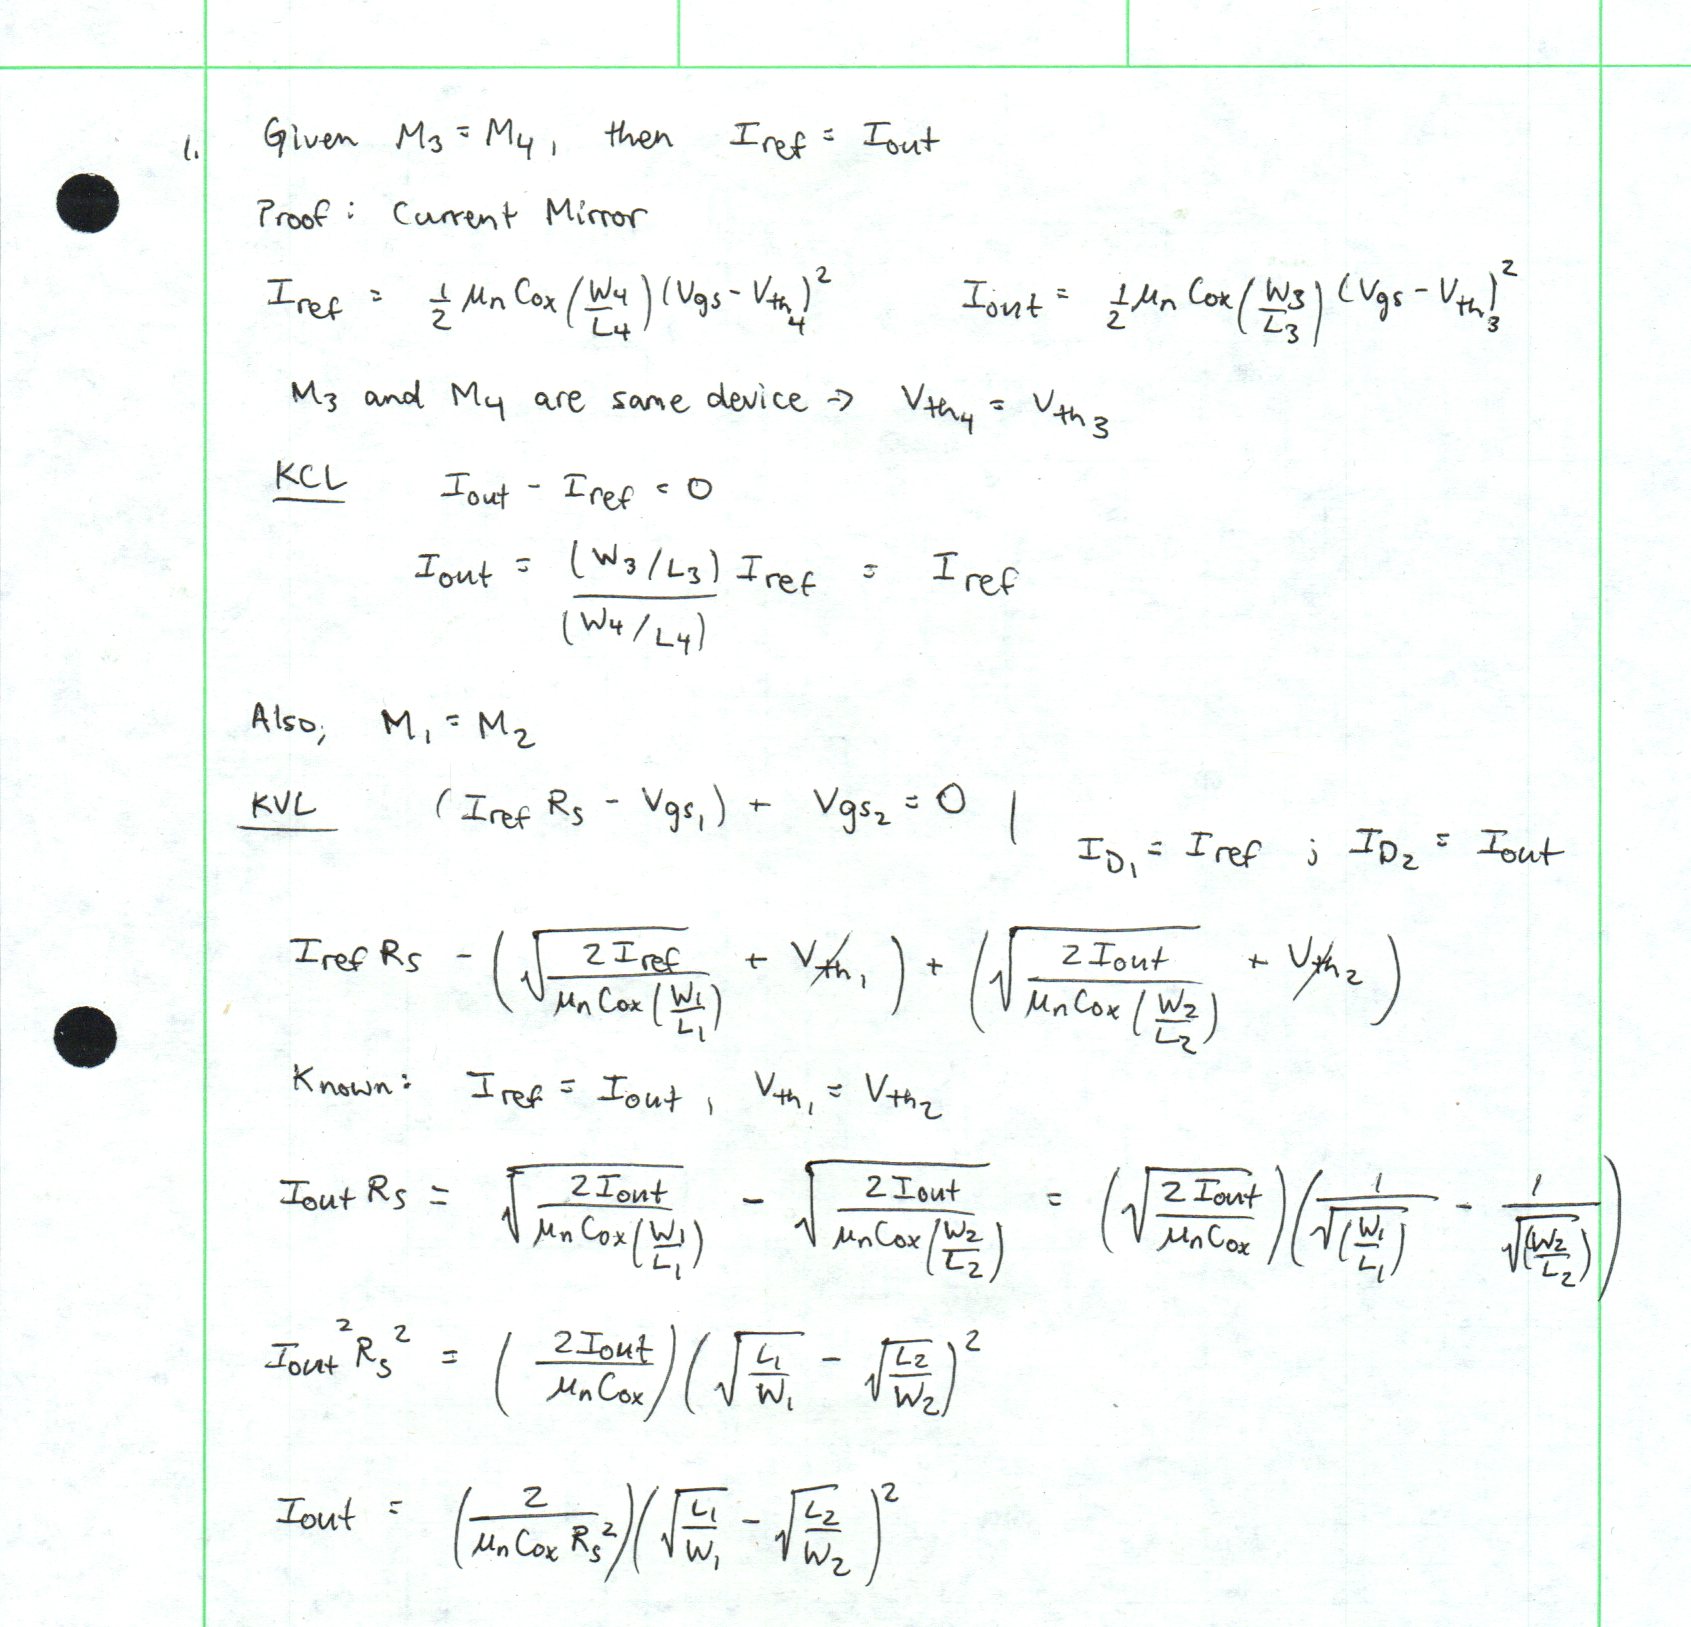 1. Given M₃ = M₄, then Iref = Iout
Proof: Current Mirror
Iref = 1/2 μn Cox (W₄/L₄) (Vgs - Vth₄)² Iout = 1/2 μn Cox (W₃/L₃) (Vgs - Vth₃)²
M₃ and M₄ are same device → Vth₄ = Vth₃
KCL Iout - Iref = 0
Iout = (W₃/L₃)/(W₄/L₄) Iref = Iref
Also, M₁ = M₂
KVL (Iref Rs - Vgs₁) + Vgs₂ = 0 | ID₁ = Iref ; ID₂ = Iout
Iref Rs - (√(2 Iref / μn Cox (W₁/L₁)) + Vth₁) + (√(2 Iout / μn Cox (W₂/L₂)) + Vth₂)
Known: Iref = Iout, Vth₁ = Vth₂
Iout Rs = √(2 Iout / μn Cox (W₁/L₁)) - √(2 Iout / μn Cox (W₂/L₂)) = (√(2 Iout / μn Cox)) (1/√(W₁/L₁) - 1/√(W₂/L₂))
Iout² Rs² = (2 Iout / μn Cox) (√(L₁/W₁) - √(L₂/W₂))²
Iout = (2 / μn Cox Rs²) (√(L₁/W₁) - √(L₂/W₂))²